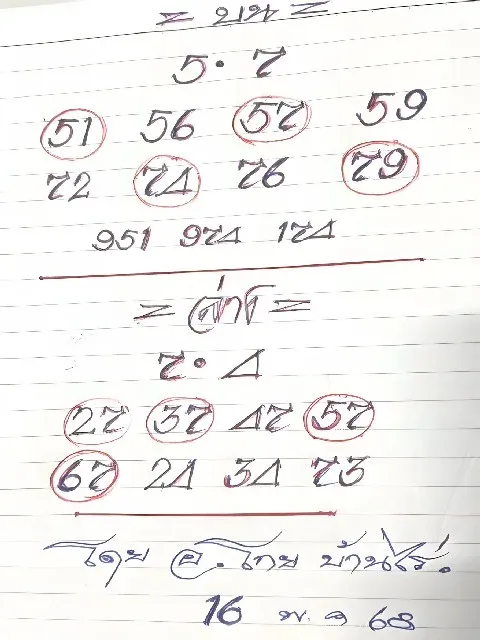 = บน =
5 · 7
51 56 57 59
72 74 76 79
951 974 174
= ล่าง =
7 · 4
27 37 47 57
67 24 34 73
โดย อ. ไทย บ้านไร่.
16 พ. ค 68